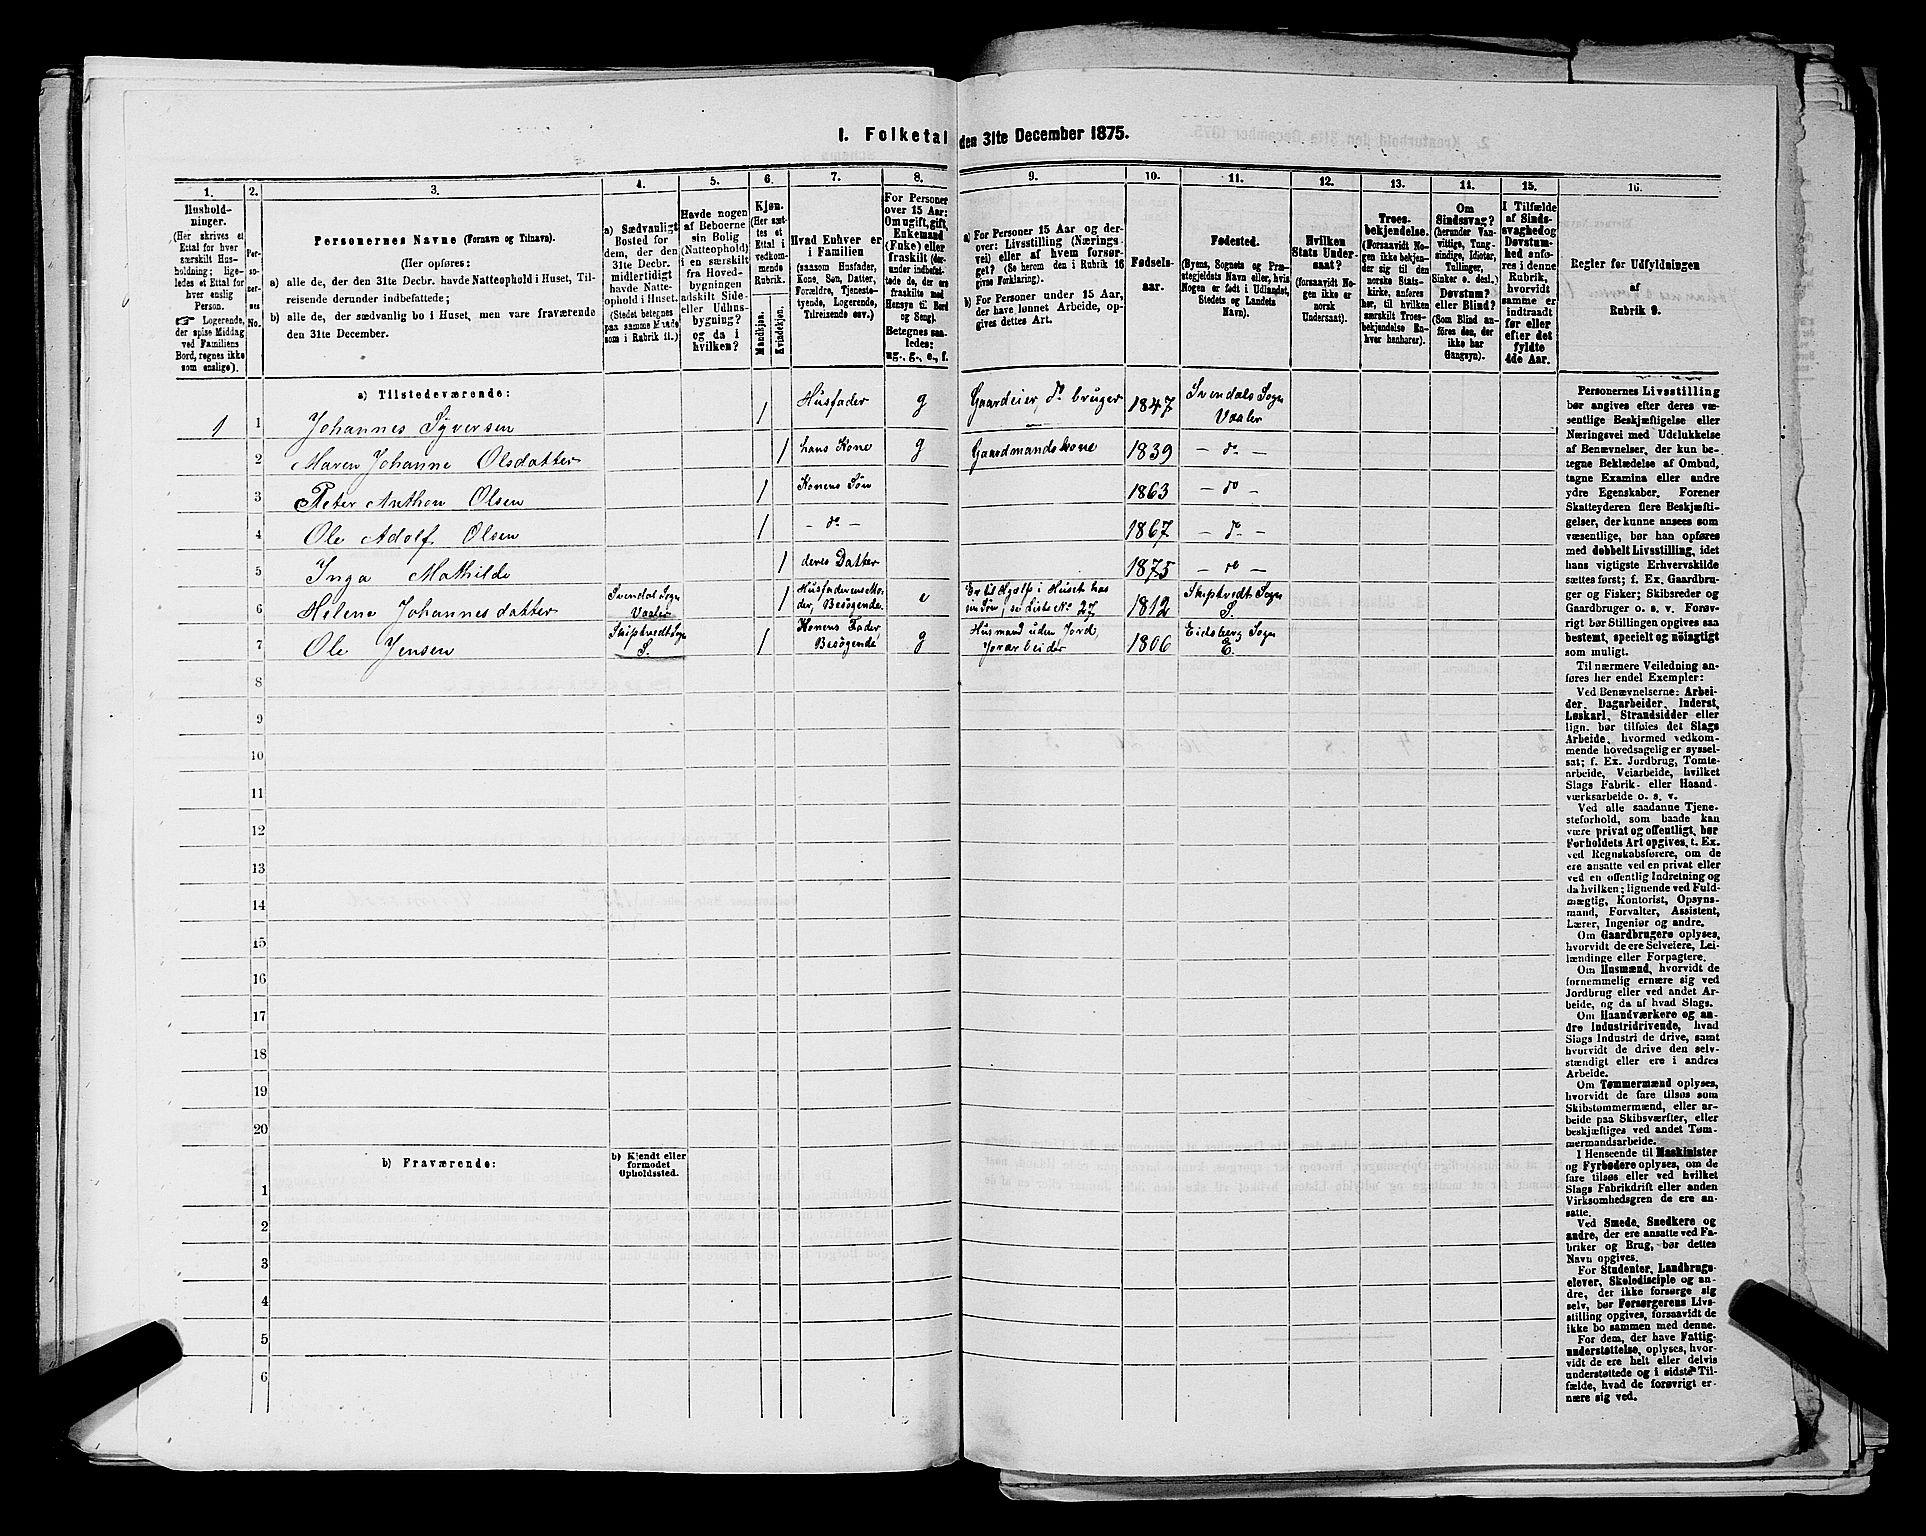 1. Folketal den 31te December 1875.
1. 2. 3. 4. 5. 6. 7. 8. 9. 10. 11. 12. 13. 14. 15. 16.
Hushold-
ninger.
(Her skrives et
Ettal for hver
særskilt Hus-
holdning; lige-
ledes et Ettal for
hver enslig
Person.
☞ Logerende,
der spise Middag
ved Familiens
Bord, regnes ikke
som enslige).
Per-
so-
ner-
nes
No.
Personernes Navne (Fornavn og Tilnavn).
(Her opføres:
a) alle de, der den 31te Decbr. havde Natteophold i Huset, Til-
reisende derunder indbefattede;
b) alle de, der sædvanlig bo i Huset, men vare fraværende
den 31te December.
a) Sædvanligt
Bosted for
dem, der den
31te Decbr.
midlertidigt
havde Natte-
ophold i Huset.
(Stedet betegnes
paa samme Maade
som i Rubrik 11.)
Havde nogen
af Beboerne
sin Bolig
(Natteophold)
i en særskilt
fra Hoved-
bygningen
adskilt Side-
eller Udhus-
bygning?
og da i
hvilken?
Kjøn.
(Her sæt-
tes et
Ettal i
vedkom-
mende
Rubrik.)
Mandkjøn.
Kvindekjøn.
Hvad Enhver er
i Familien
(saasom Husfader,
Kone, Søn, Datter,
Forældre, Tjeneste-
tyende, Logerende,
Tilreisende osv.)
For Personer
over 15 Aar:
Om ugift, gift,
Enkemand
(Enke) eller
fraskilt (der-
under indbefat-
tede de, der ere
fraskilte med
Hensyn til Bord
og Seng).
Betegnes saa-
ledes:
ug., g., e., f.
a) For Personer 15 Aar og der-
over: Livsstilling (Nærings-
vei) eller af hvem forsør-
get? (Se herom den i Rubrik 16
givne Forklaring).
b) For Personer under 15 Aar,
der have lønnet Arbeide, op-
gives dettes Art.
Fødsels-
aar.
Fødested.
(Byens, Sognets og Præ-
stegjeldets Navn eller, hvis
Nogen er født i Udlandet,
Stedets og Landets
Navn).
Hvilken
Stats Under-
saat?
(forsaavidt No-
gen ikke er
norsk
Undersaat).
Troes-
bekjendelse.
(Forsaavidt No-
gen ikke bekjen-
der sig til den
norske Stats-
kirke, anføres
her, til hvilken
særskilt Troes-
bekjendelse En-
hver henhører).
Om
Sindssvag?
(herunder Van-
vittige, Tung-
sindige, Idioter,
Tullinger,
Sinker o. desl.)
Døvstum?
eller Blind?
(Som Blind an-
føres den, der
ikke har
Gangsyn).
I Tilfælde
af Sinds-
svaghed og
Døvstum-
hed anfø-
res i denne
Rubrik,
hvorvidt
samme er
indtraadt
før eller
efter det
fyldte
4de Aar.
Regler for Udfyldningen
af
Rubrik 9.
a) Tilstedeværende:
1 1 Johannes Syversen 1 Husfader g Gaardeier, do bruger 1847 Svendals Sogn Vaaler
2 Maren Johanne Olsdatter 1 hans Kone g Gaardmandskone 1839 - do -
3 Peter Anthon Olsen 1 Konens Søn 1863 - do -
4 Ole Adolf Olsen 1 - do - 1867 - do -
5 Inga Mathilde 1 deres Datter 1875 - do -
6 Helene Johannesdatter Svendal Sogn Vaaler 1 Husfaderens Mo-der, Besøgende. e Er til Hjælp i Huset hos sin Søn, se Liste No 27 1812 Skiptvedt Sogn S.
7 Ole Jensen Skiptvedt Sogn S. 1 Konens Fader, Besøgende g Husmand uden Jord, Jorarbeider 1806 Eidsberg Sogn E.
8
9
10
11
12
13
14
15
16
17
18
19
20
b) Fraværende:
b) Kjendt eller
formodet
Opholdssted.
1
2
3
4
5
6
Personernes Livsstilling
bør angives efter deres væ-
sentlige Beskjæftigelse eller
Næringsvei med Udelukkelse
af Benævnelser, der kun be-
tegne Beklædelse af Ombud,
tagne Examina eller andre
ydre Egenskaber. Forener
Skatteyderen flere Beskjæfti-
gelser, der kunne ansees som
væsentlige, bør han opføres
med dobbelt Livsstilling, idet
hans vigtigste Erhvervskilde
sættes først; f. Ex. Gaardbru-
ger og Fisker; Skibsreder og
Gaardbruger o. s. v. Forøv-
rigt bør Stillingen opgives saa
bestemt, specielt og nøiagtigt
som muligt.
Til nærmere Veiledning an-
føres her endel Exempler:
Ved Benævnelserne: Arbei-
der, Dagarbeider, Inderst,
Løskarl, Strandsidder eller
lign. bør tilføies det Slags
Arbeide, hvormed vedkom-
mende hovedsagelig er syssel-
sat; f. Ex. Jordbrug, Tomte-
arbeide, Veiarbeide, hvilket
Slags Fabrik- eller Haand-
værksarbeide o. s. v.
Ved alle saadanne Tjene-
steforhold, som baade kan
være privat og offentligt, bør
Forholdets Art opgives, t. Ex.
ved Regnskabsførere, om de
ere ansatte ved en privat eller
ved en offentlig Indretning og
da hvilken; lignende ved Fuld-
mægtig, Kontorist, Opsyns-
mand, Forvalter, Assistent,
Lærer, Ingeniør og andre.
Om Gaardbrugere oplyses,
hvorvidt de ere Selveiere, Lei-
lændinge eller Forpagtere.
Om Husmænd, hvorvidt de
fornemmelig ernære sig ved
Jordbrug eller ved andet Ar-
beide, og da af hvad Slags.
Om Haandværkere og an-
dre Industridrivende, hvad
Slags Industri de drive, samt
hvorvidt de drive den selv-
stændigt eller ere i andres
Arbeide.
Om Tømmermænd oplyses,
hvorvidt de fare tilsøs som
Skibstømmermænd, eller ar-
beide paa Skibsværfter, eller
beskjæftiges ved andet Tøm-
mermandsarbeide.
I Henseende til Maskinister
og Fyrbødere oplyses, om de
fare tilsøs eller ved hvilket
Slags Fabrikdrift eller anden
Virksomhedsgren de ere an-
satte.
Ved Smede, Snedkere og
andre, der ere ansatte ved Fa-
briker og Brug, bør dettes
Navn opgives.
For Studenter, Landbrugs-
elever, Skoledisciple og an-
dre, der ikke forsørge sig
selv, bør Forsørgerens Livs-
stilling opgives, forsaavidt de
ikke bo sammen med denne.
For dem, der have Fattig-
understøttelse, oplyses, hvor-
vidt de ere helt eller delvis
understøttede og i sidste Til-
fælde, hvad de forøvrigt er-
nære sig ved.